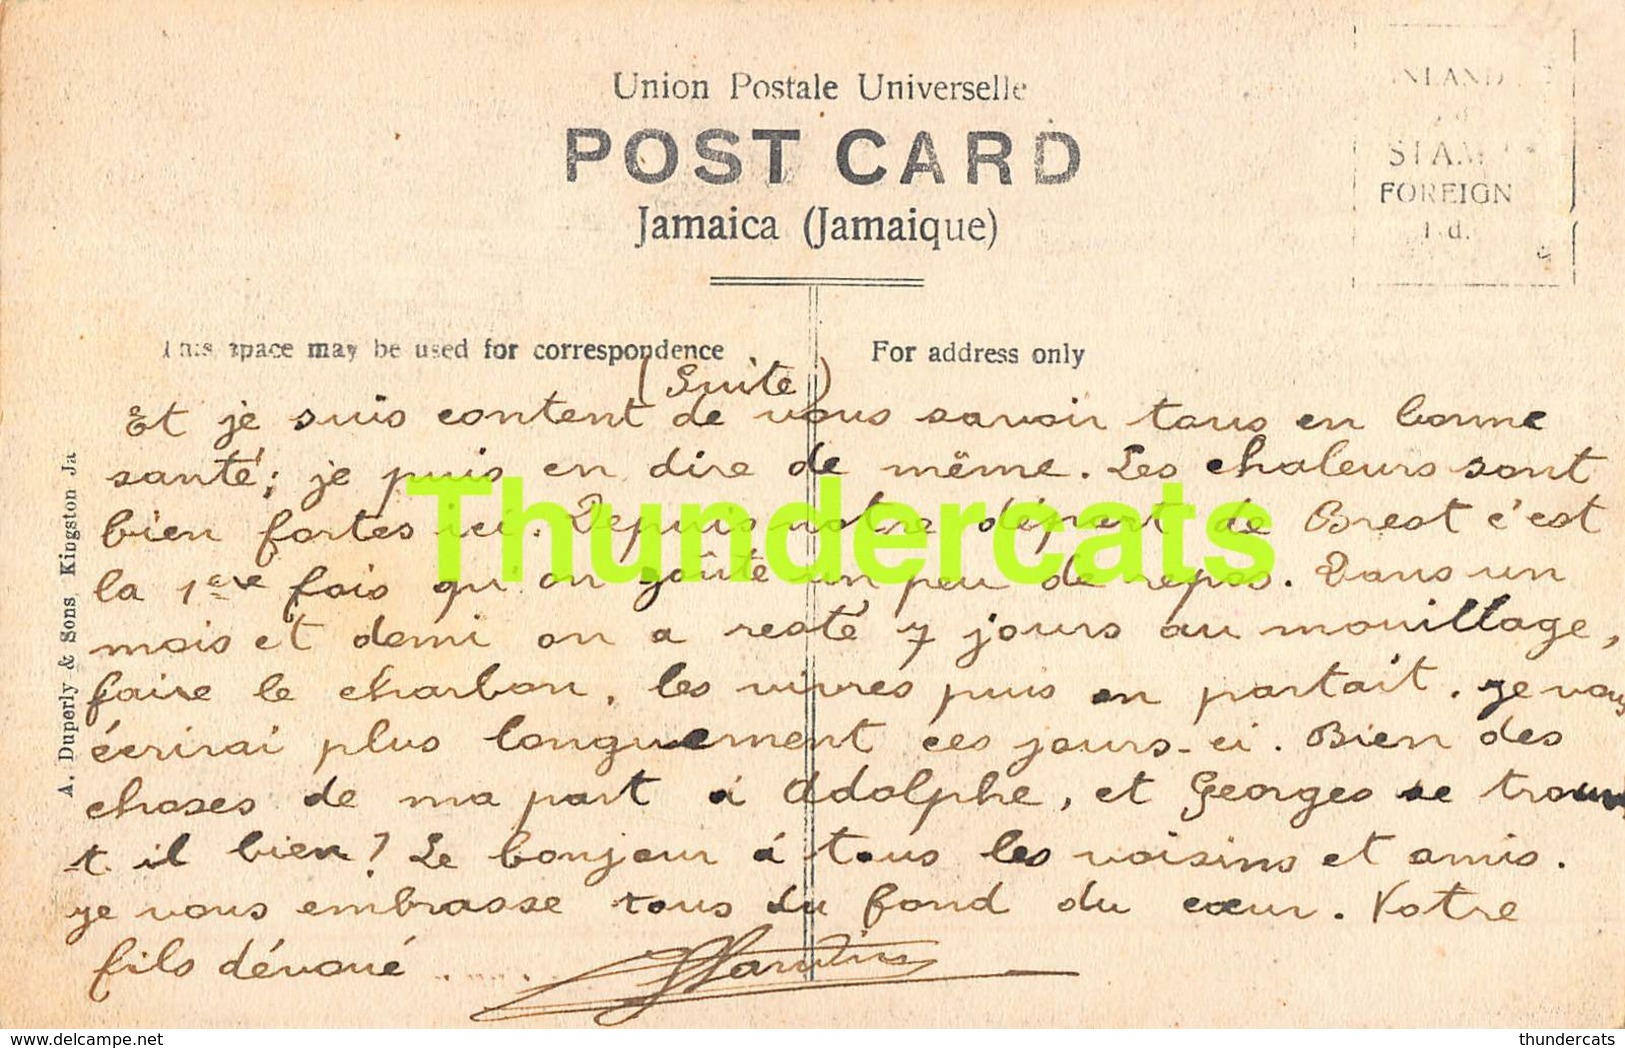 Union Postale Universelle
POST CARD
Jamaica (Jamaique)
INLAND
STAMP
FOREIGN
1d.
This space may be used for correspondence
For address only
A. Duperly & Sons Kingston Ja
(Suite)
Et je suis content de vous savoir tous en bonne
santé; je puis en dire de même. Les chaleurs sont
bien fortes ici. Depuis notre départ de Brest c'est
la 1ere fois qu'on goûte un peu de repos. Dans un
mois et demi on a resté 7 jours au mouillage,
faire le charbon, les vivres puis on partait. Je vous
écrirai plus longuement ces jours-ci. Bien des
choses de ma part à Adolphe, et Georges se trouve
t. il bien? Le bonjour à tous les voisins et amis.
Je vous embrasse tous du fond du cœur. Votre
fils dévoué ......
Thundercats
delcampe.net
thundercats